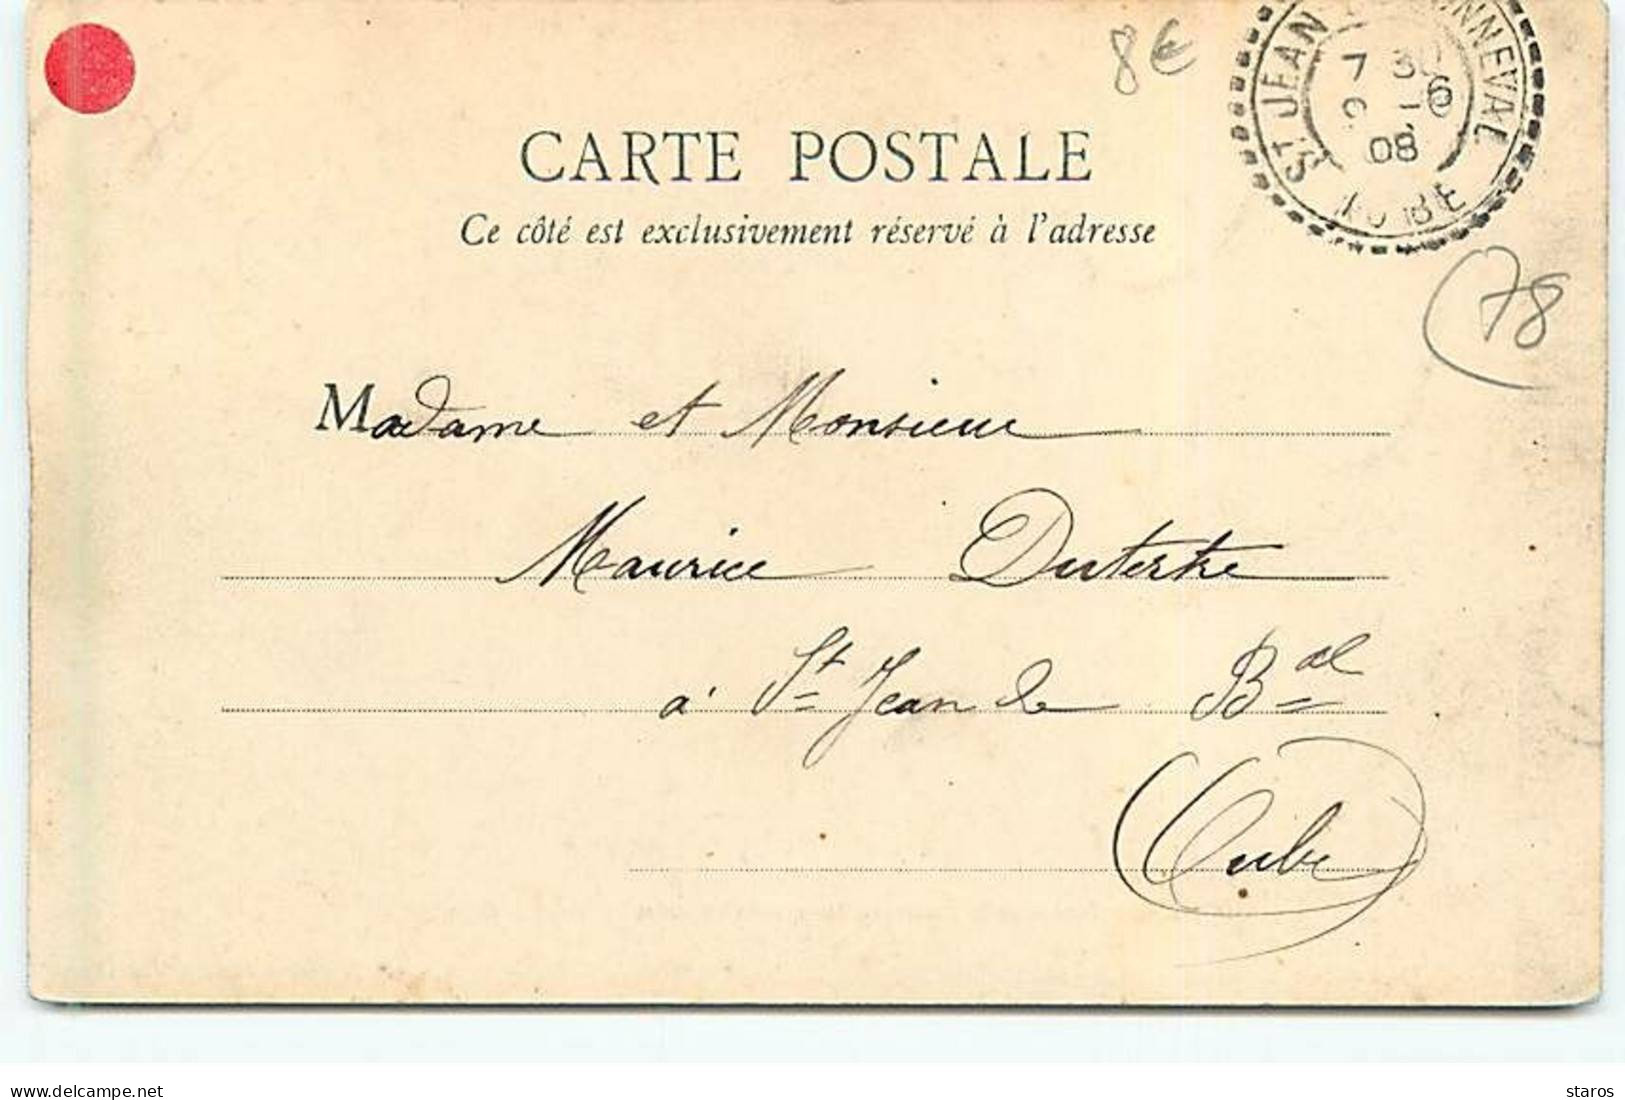 8€
ST JEAN DE BONNEVAL
7 30
9 -6
08
AUBE
CARTE POSTALE
Ce côté est exclusivement réservé à l'adresse
(78
Madame et Monsieur
Maurice Dutertre
à St Jean de Bal
(Aube)
delcampe.net
staros